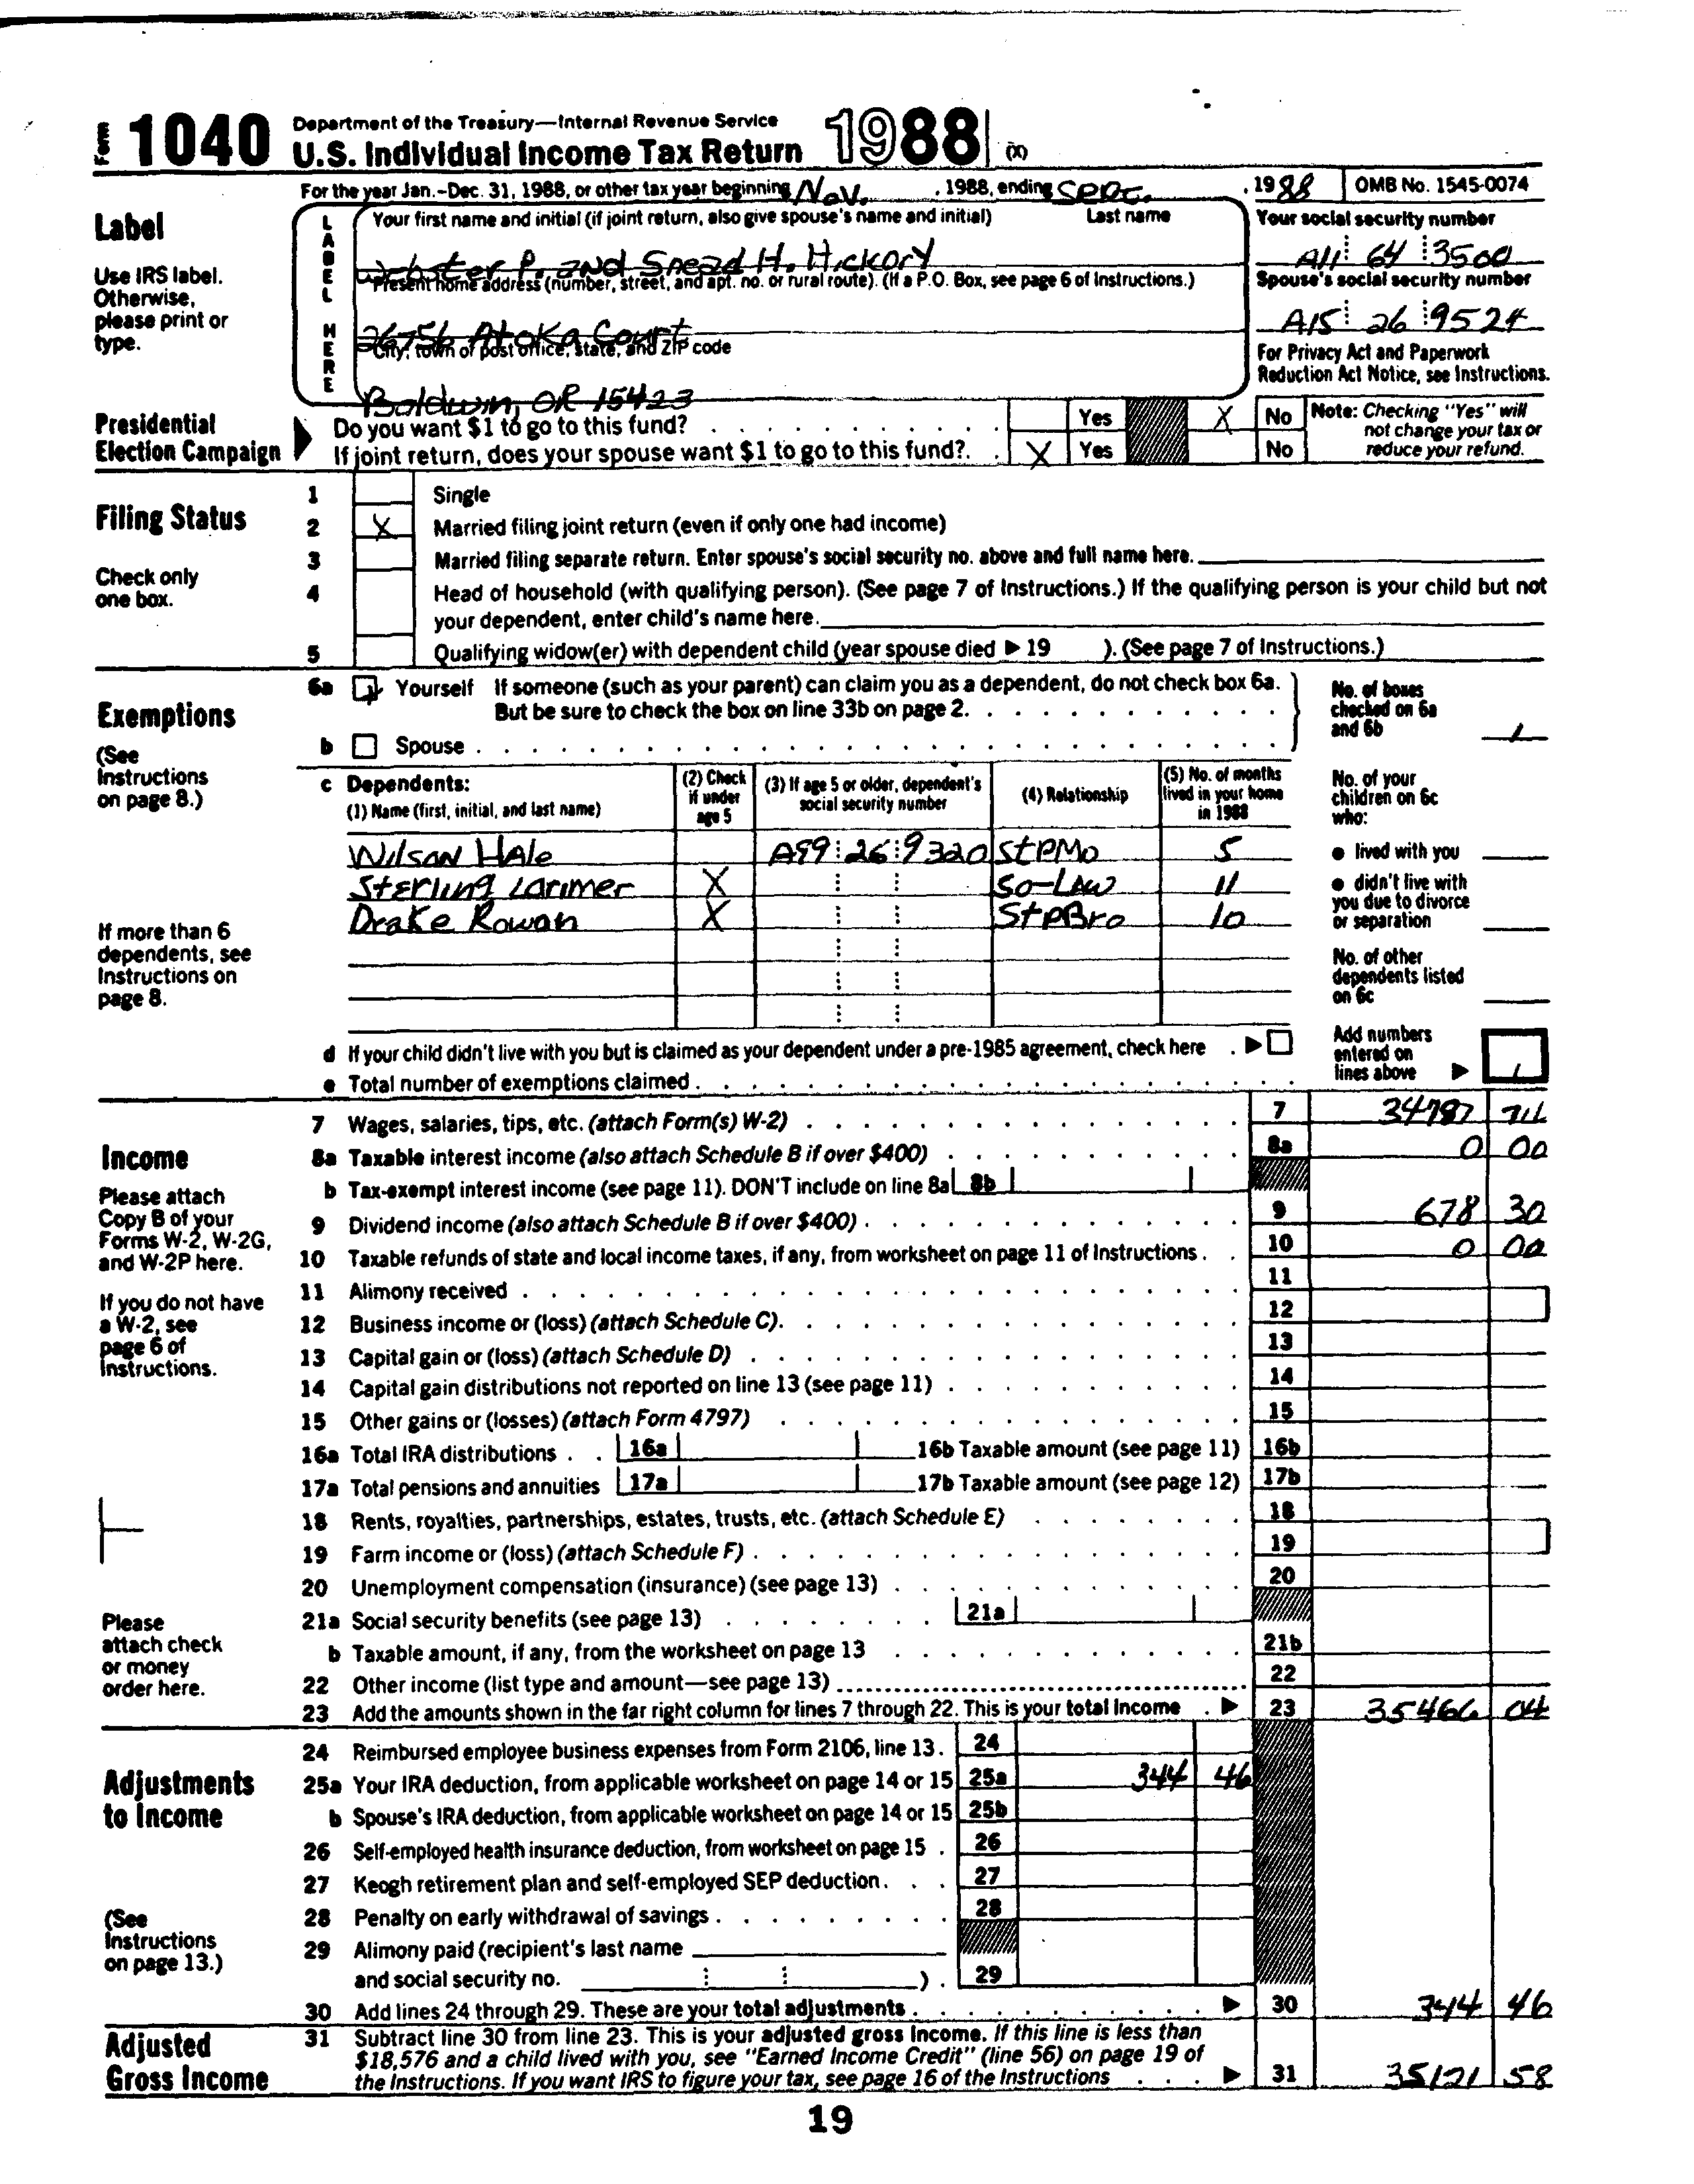 Form 1040 Department of the Treasury—Internal Revenue Service
U.S. Individual Income Tax Return 1988 (X)
For the year Jan.-Dec. 31, 1988, or other tax year beginning Nov. , 1988, ending , 1988 OMB No. 1545-0074
Label
Use IRS label.
Otherwise,
please print or
type.
LABEL HERE
Your first name and initial (if joint return, also give spouse's name and initial) Last name
Webster P. and Snead H. Hickory
Present home address (number, street, and apt. no. or rural route). (If a P.O. Box, see page 6 of Instructions.)
26756 Atoka Court
City, town or post office, state, and ZIP code
Baldwin, OR 15423
Your social security number
A11 64 3500
Spouse's social security number
A15 26 9524
For Privacy Act and Paperwork
Reduction Act Notice, see Instructions.
Presidential
Election Campaign
Do you want $1 to go to this fund? Yes X No
If joint return, does your spouse want $1 to go to this fund? X Yes No
Note: Checking "Yes" will
not change your tax or
reduce your refund.
Filing Status
Check only
one box.
1 Single
2 X Married filing joint return (even if only one had income)
3 Married filing separate return. Enter spouse's social security no. above and full name here.
4 Head of household (with qualifying person). (See page 7 of Instructions.) If the qualifying person is your child but not
your dependent, enter child's name here.
5 Qualifying widow(er) with dependent child (year spouse died ▶ 19 ). (See page 7 of Instructions.)
Exemptions
(See
Instructions
on page 8.)
If more than 6
dependents, see
Instructions on
page 8.
6a Yourself If someone (such as your parent) can claim you as a dependent, do not check box 6a.
But be sure to check the box on line 33b on page 2.
b Spouse
No. of boxes
checked on 6a
and 6b 1
c Dependents:
(1) Name (first, initial, and last name)
(2) Check
if under
age 5
(3) If age 5 or older, dependent's
social security number
(4) Relationship
(5) No. of months
lived in your home
in 1988
Wilson Hale A99 26 9320 StPMo 5
Sterling Larimer X So-Law 11
Drake Rowan X StPBro 10
No. of your
children on 6c
who:
● lived with you
● didn't live with
you due to divorce
or separation
No. of other
dependents listed
on 6c
d If your child didn't live with you but is claimed as your dependent under a pre-1985 agreement, check here ▶
e Total number of exemptions claimed
Add numbers
entered on
lines above ▶ 1
Income
Please attach
Copy B of your
Forms W-2, W-2G,
and W-2P here.
If you do not have
a W-2, see
page 6 of
Instructions.
Please
attach check
or money
order here.
7 Wages, salaries, tips, etc. (attach Form(s) W-2) 7 34787 74
8a Taxable interest income (also attach Schedule B if over $400) 8a 0 00
b Tax-exempt interest income (see page 11). DON'T include on line 8a 8b
9 Dividend income (also attach Schedule B if over $400) 9 678 30
10 Taxable refunds of state and local income taxes, if any, from worksheet on page 11 of Instructions 10 0 00
11 Alimony received 11
12 Business income or (loss) (attach Schedule C) 12
13 Capital gain or (loss) (attach Schedule D) 13
14 Capital gain distributions not reported on line 13 (see page 11) 14
15 Other gains or (losses) (attach Form 4797) 15
16a Total IRA distributions 16a 16b Taxable amount (see page 11) 16b
17a Total pensions and annuities 17a 17b Taxable amount (see page 12) 17b
18 Rents, royalties, partnerships, estates, trusts, etc. (attach Schedule E) 18
19 Farm income or (loss) (attach Schedule F) 19
20 Unemployment compensation (insurance) (see page 13) 20
21a Social security benefits (see page 13) 21a
b Taxable amount, if any, from the worksheet on page 13 21b
22 Other income (list type and amount—see page 13) 22
23 Add the amounts shown in the far right column for lines 7 through 22. This is your total income ▶ 23 35466 04
Adjustments
to Income
(See
Instructions
on page 13.)
24 Reimbursed employee business expenses from Form 2106, line 13. 24
25a Your IRA deduction, from applicable worksheet on page 14 or 15 25a 344 46
b Spouse's IRA deduction, from applicable worksheet on page 14 or 15 25b
26 Self-employed health insurance deduction, from worksheet on page 15 26
27 Keogh retirement plan and self-employed SEP deduction 27
28 Penalty on early withdrawal of savings 28
29 Alimony paid (recipient's last name
and social security no. ) 29
30 Add lines 24 through 29. These are your total adjustments ▶ 30 344 46
Adjusted
Gross Income
31 Subtract line 30 from line 23. This is your adjusted gross income. If this line is less than
$18,576 and a child lived with you, see "Earned Income Credit" (line 56) on page 19 of
the Instructions. If you want IRS to figure your tax, see page 16 of the Instructions ▶ 31 35121 58
19